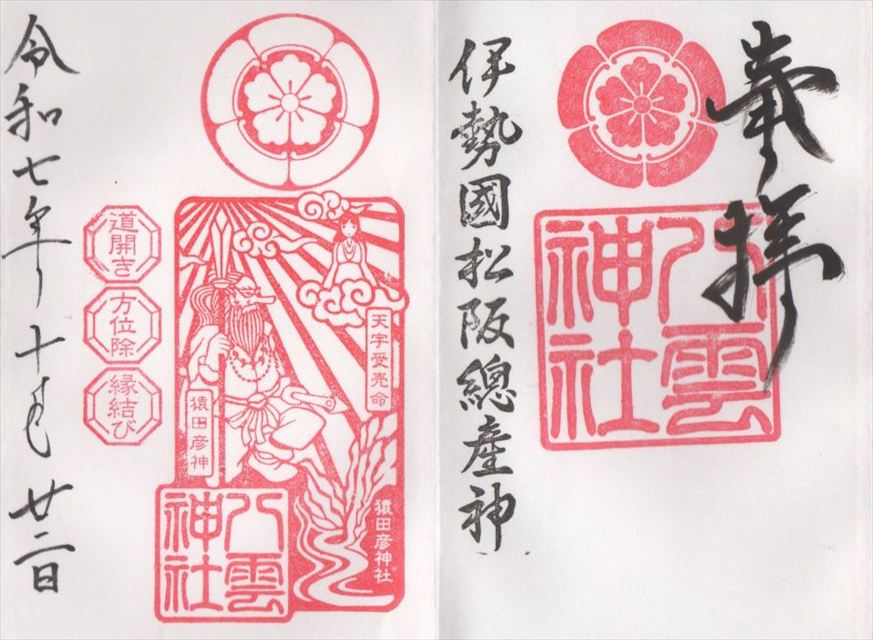 奉拝
八雲
神社
伊勢國松阪總産神
天宇受売命
猿田彦神
猿田彦神社
八雲
神社
道開き
方位除
縁結び
令和七年十月廿二日